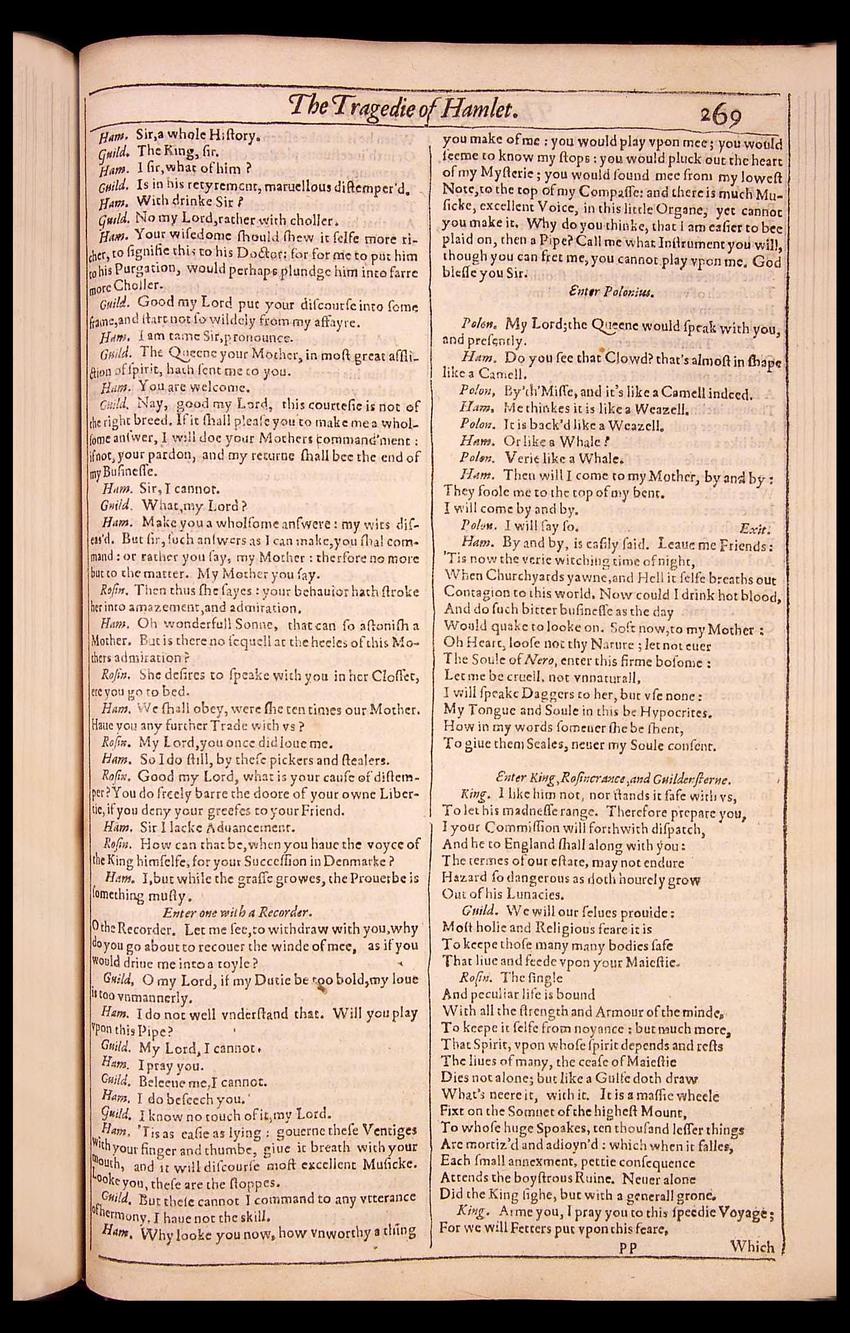 The Tragedie of Hamlet.
269
Ham. Sir, a whole Hiſtory.
Guild. The King, ſir.
Ham. I ſir, what of him ?
Guild. Is in his retyrement, maruellous diſtemper'd.
Ham. With drinke Sir ?
Guild. No my Lord, rather with choller.
Ham. Your wiſedome ſhould ſhew it ſelfe more ri-
cher, to ſignifie this to his Doctor: for for me to put him
to his Purgation, would perhaps plundge him into farre
more Choller.
Guild. Good my Lord put your diſcourſe into ſome
frame, and ſtart not ſo wildely from my affayre.
Ham. I am tame Sir, pronounce.
Guild. The Queene your Mother, in moſt great affli-
ction of ſpirit, hath ſent me to you.
Ham. You are welcome.
Guild. Nay, good my Lord, this courteſie is not of
the right breed. If it ſhall pleaſe you to make me a whol-
ſome anſwer, I will doe your Mothers command'ment :
if not, your pardon, and my returne ſhall bee the end of
my Buſineſſe.
Ham. Sir, I cannot.
Guild. What, my Lord ?
Ham. Make you a wholſome anſwere : my wits diſ-
eas'd. But ſir, ſuch anſwers as I can make, you ſhal com-
mand : or rather you ſay, my Mother : therfore no more
but to the matter. My Mother you ſay.
Roſin. Then thus ſhe ſayes : your behauior hath ſtroke
her into amazement, and admiration.
Ham. Oh wonderfull Sonne, that can ſo aſtoniſh a
Mother. But is there no ſequell at the heeles of this Mo-
thers admiration ?
Roſin. She deſires to ſpeake with you in her Cloſſet,
ere you go to bed.
Ham. We ſhall obey, were ſhe ten times our Mother.
Haue you any further Trade with vs ?
Roſin. My Lord, you once did loue me.
Ham. So I do ſtill, by theſe pickers and ſtealers.
Roſin. Good my Lord, what is your cauſe of diſtem-
per? You do freely barre the doore of your owne Liber-
tie, if you deny your greefes to your Friend.
Ham. Sir I lacke Aduancement.
Roſin. How can that be, when you haue the voyce of
the King himſelfe, for your Succeſſion in Denmarke ?
Ham. I, but while the graſſe growes, the Prouerbe is
ſomething muſty.
Enter one with a Recorder.
O the Recorder. Let me ſee, to withdraw with you, why
do you go about to recouer the winde of mee, as if you
would driue me into a toyle ?
Guild. O my Lord, if my Dutie be too bold, my loue
is too vnmannerly.
Ham. I do not well vnderſtand that. Will you play
vpon this Pipe?
Guild. My Lord, I cannot.
Ham. I pray you.
Guild. Beleeue me, I cannot.
Ham. I do beſeech you.
Guild. I know no touch of it, my Lord.
Ham. 'Tis as eaſie as lying : gouerne theſe Ventiges
with your finger and thumbe, giue it breath with your
mouth, and it will diſcourſe moſt excellent Muſicke.
Looke you, theſe are the ſtoppes.
Guild. But theſe cannot I command to any vtterance
of hermony, I haue not the skill.
Ham. Why looke you now, how vnworthy a thing
you make of me : you would play vpon mee; you would
ſeeme to know my ſtops : you would pluck out the heart
of my Myſterie ; you would ſound mee from my loweſt
Note, to the top of my Compaſſe: and there is much Mu-
ſicke, excellent Voice, in this little Organe, yet cannot
you make it. Why do you thinke, that I am eaſier to bee
plaid on, then a Pipe? Call me what Inſtrument you will,
though you can fret me, you cannot play vpon me. God
bleſſe you Sir.
Enter Polonius.
Polon. My Lord; the Queene would ſpeak with you,
and preſently.
Ham. Do you ſee that Clowd? that's almoſt in ſhape
like a Camell.
Polon, By'th'Miſſe, and it's like a Camell indeed.
Ham. Me thinkes it is like a Weazell.
Polon. It is back'd like a Weazell.
Ham. Or like a Whale ?
Polon. Verie like a Whale.
Ham. Then will I come to my Mother, by and by :
They foole me to the top of my bent.
I will come by and by.
Polon. I will ſay ſo. Exit.
Ham. By and by, is eaſily ſaid. Leaue me Friends :
'Tis now the verie witching time of night,
When Churchyards yawne, and Hell it ſelfe breaths out
Contagion to this world. Now could I drink hot blood,
And do ſuch bitter buſineſſe as the day
Would quake to looke on. Soft now, to my Mother :
Oh Heart, looſe not thy Nature ; let not euer
The Soule of Nero, enter this firme boſome :
Let me be cruell, not vnnaturall,
I will ſpeake Daggers to her, but vſe none :
My Tongue and Soule in this be Hypocrites.
How in my words ſomeuer ſhe be ſhent,
To giue them Seales, neuer my Soule conſent.
Enter King, Roſincrance, and Guilderſterne.
King. I like him not, nor ſtands it ſafe with vs,
To let his madneſſe range. Therefore prepare you,
I your Commiſſion will forthwith diſpatch,
And he to England ſhall along with you :
The termes of our eſtate, may not endure
Hazard ſo dangerous as doth hourely grow
Out of his Lunacies.
Guild. We will our ſelues prouide :
Moſt holie and Religious feare it is
To keepe thoſe many many bodies ſafe
That liue and feede vpon your Maieſtie.
Roſin. The ſingle
And peculiar life is bound
With all the ſtrength and Armour of the minde,
To keepe it ſelfe from noyance : but much more,
That Spirit, vpon whoſe ſpirit depends and reſts
The liues of many, the ceaſe of Maieſtie
Dies not alone; but like a Gulfe doth draw
What's neere it, with it. It is a maſſie wheele
Fixt on the Somnet of the higheſt Mount,
To whoſe huge Spoakes, ten thouſand leſſer things
Are mortiz'd and adioyn'd : which when it falles,
Each ſmall annexment, pettie conſequence
Attends the boyſtrous Ruine. Neuer alone
Did the King ſighe, but with a generall grone.
King. Arme you, I pray you to this ſpeedie Voyage;
For we will Fetters put vpon this feare,
PP Which